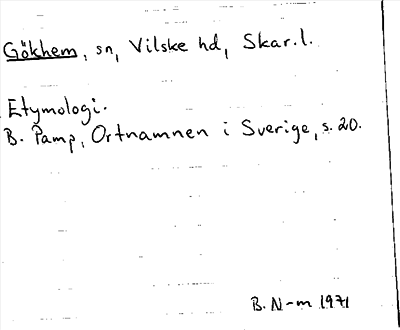 Gökhem, sn, Vilske hd, Skar.l.
Etymologi.
B. Pamp, Ortnamnen i Sverige, s. 20.
B. N-m 1971